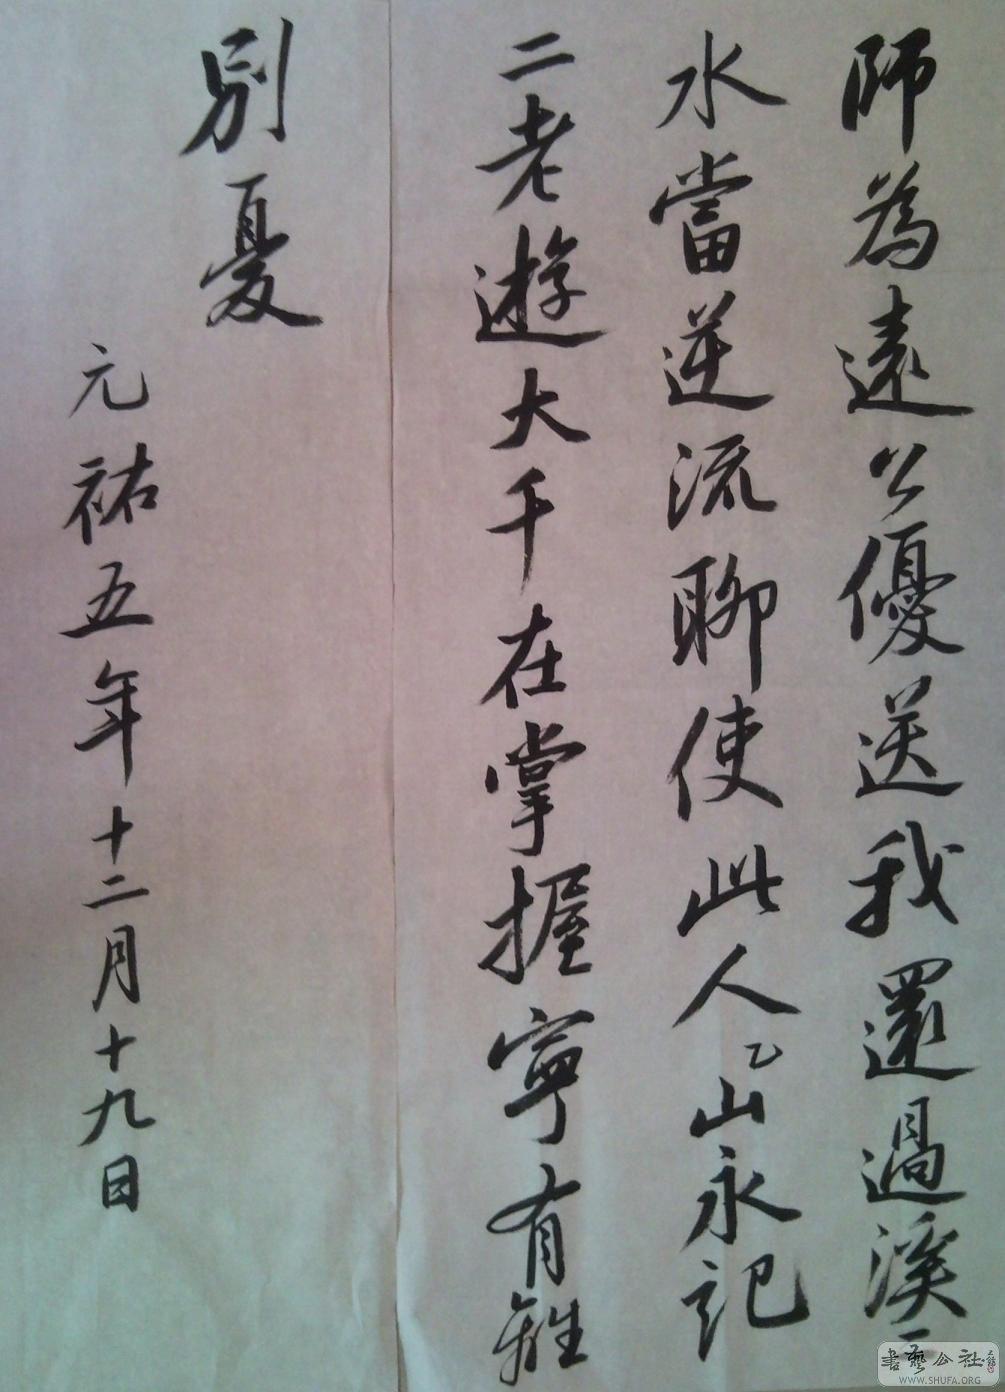 師為遠公優送我還過溪〻
水當逆流聊使此人山永記
二老遊大千在掌握寧有離
別憂
元祐五年十二月十九日
書藝公社
WWW.SHUFA.ORG